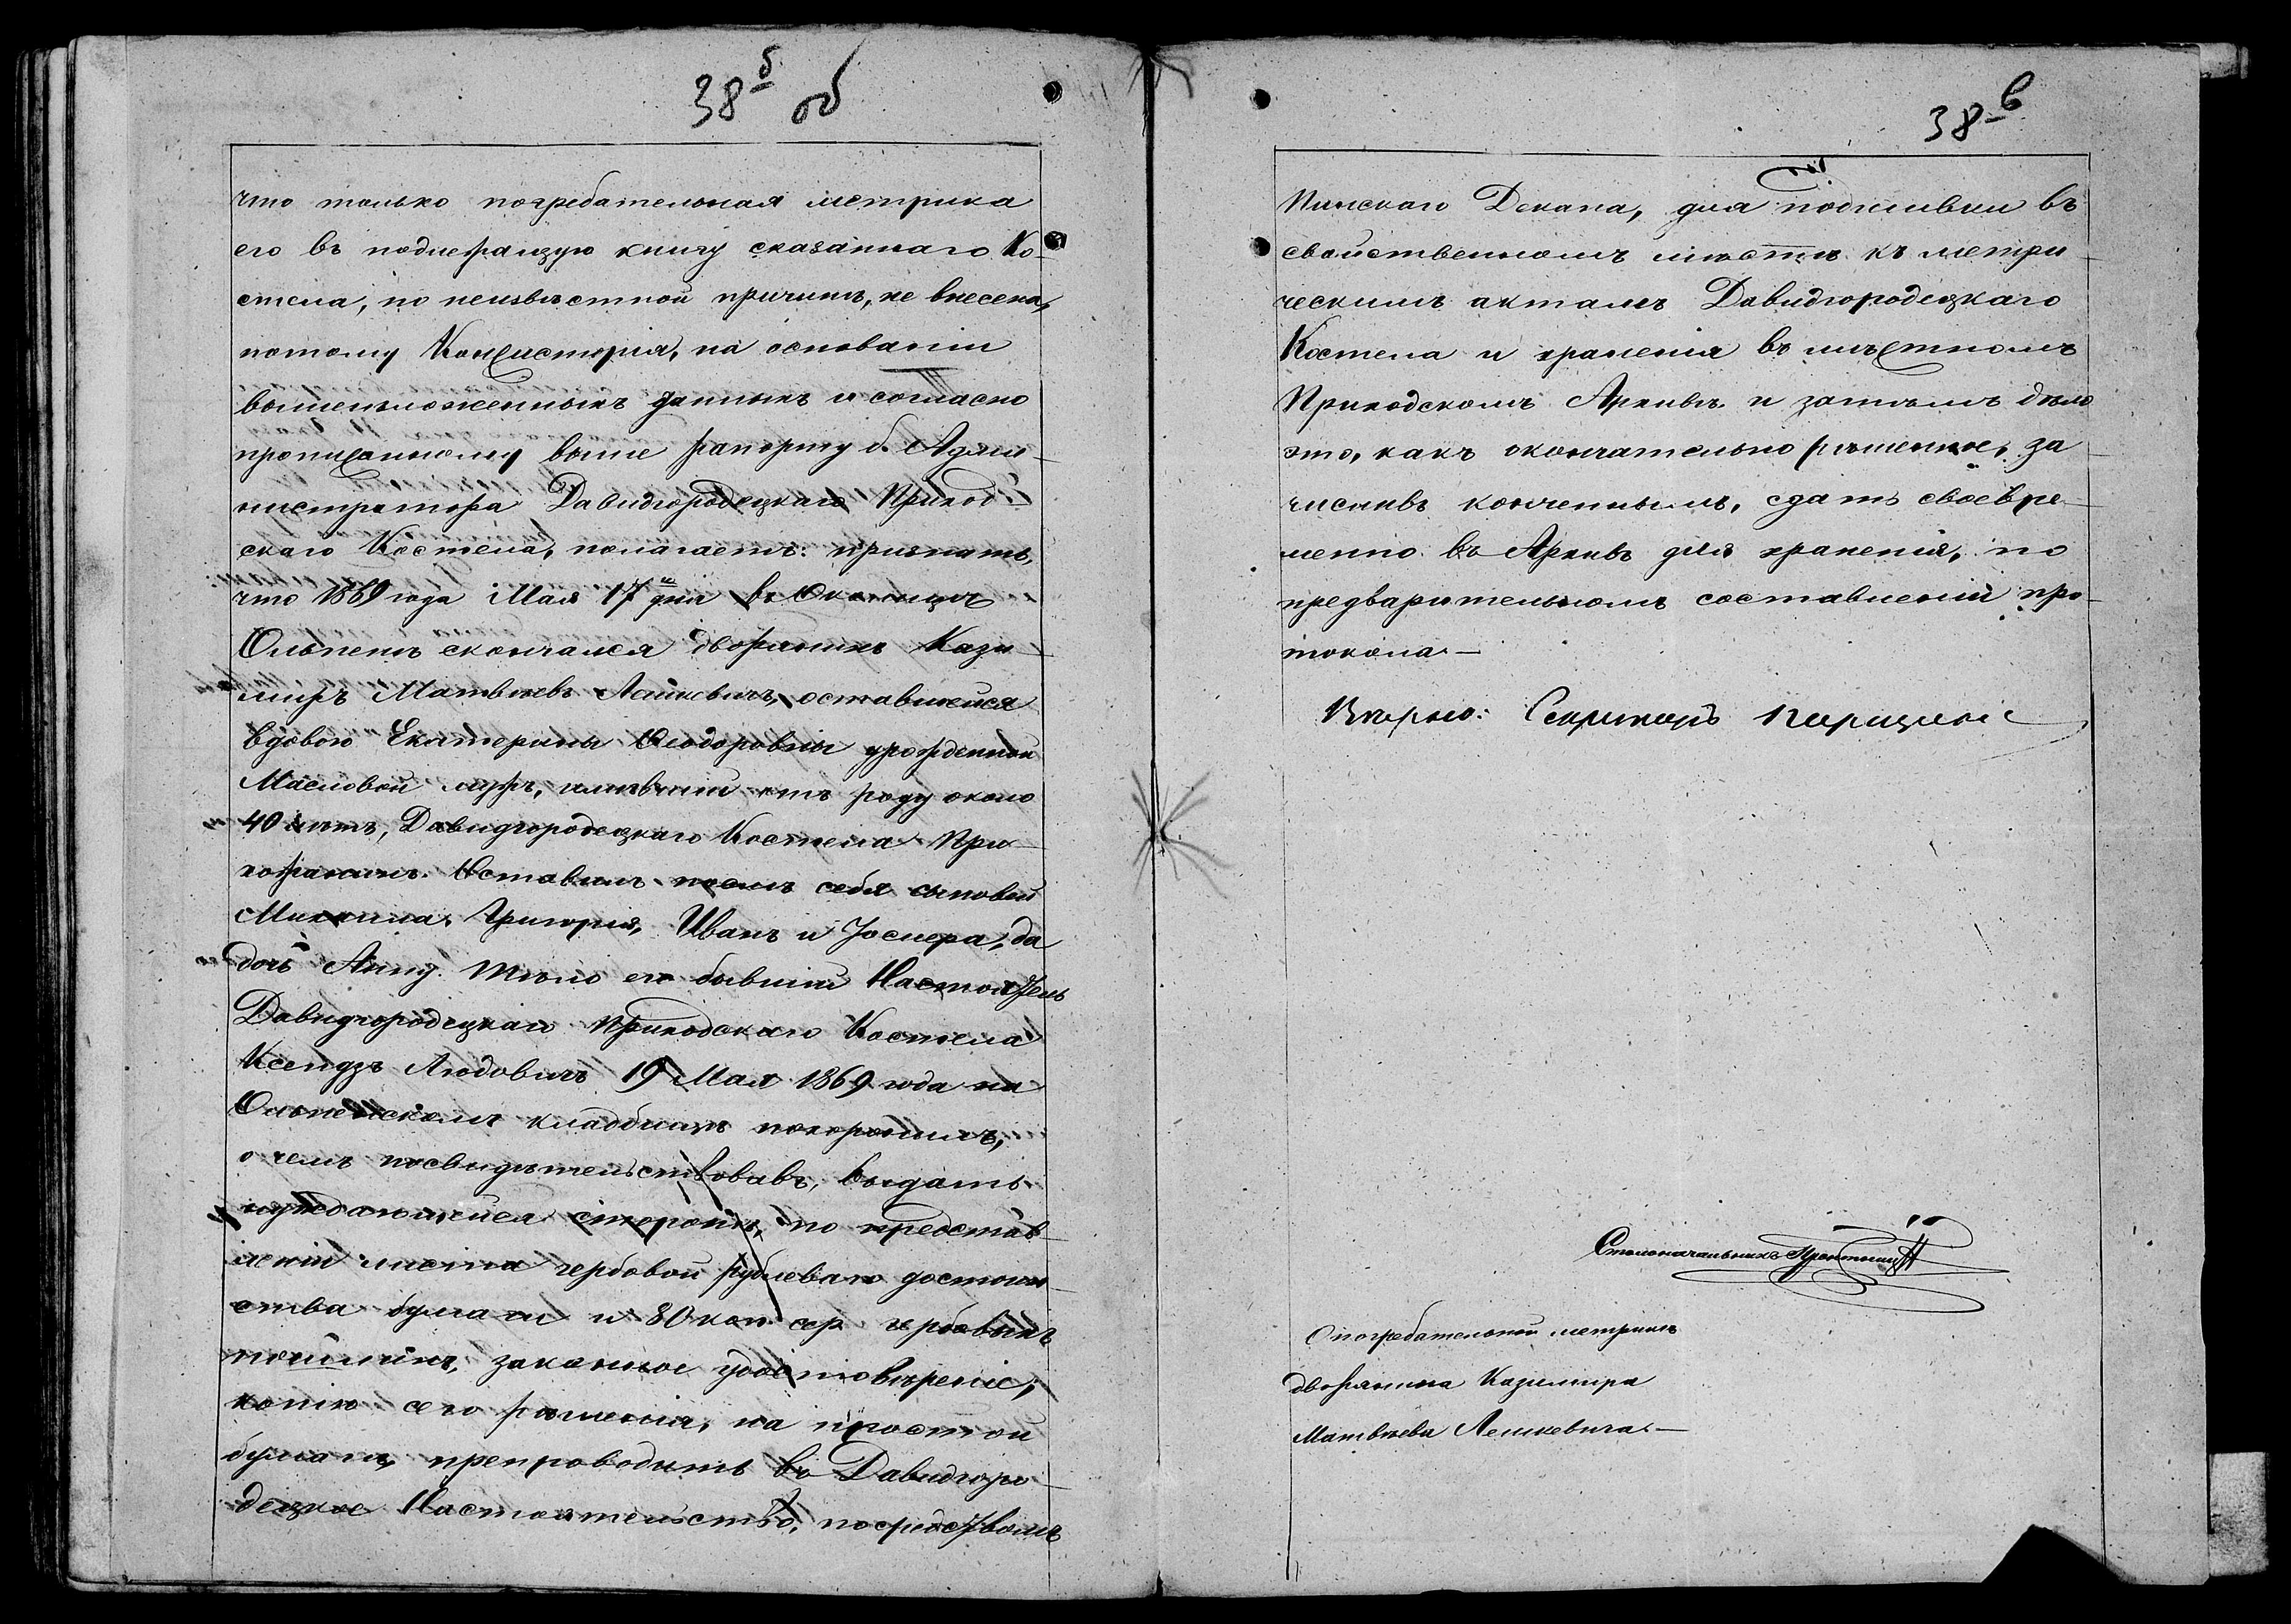 38б об
что только погребательная метрика
его въ подлежащую книгу сказаннаго Ко-
стела, по неизвѣстной причинѣ, не внесена,
потому Консисторія, на основаніи
вышеизложенныхъ данныхъ и согласно
прописанному выше рапорту б. Адми-
нистратора Давидгородецкаго Приход-
скаго Костела, полагаетъ: признать,
что 1869 года Мая 17 дня въ Околицѣ
Ольпень скончался дворянинъ Кази-
миръ Матвѣевъ Лешкевичъ, оставшейся
вдовою Екатерины Ѳеодоровны урожденной
Масловой мужъ, имѣвшій отъ роду около
40 лѣтъ, Давидгородецкаго Костела При-
хожанинъ. Оставилъ послѣ себя сыновей
Михаила, Григорія, Ивана и Іосифа, да
дочь Анну. Тѣло его бывшій Настоятель
Давидгородецкаго Приходскаго Костела
Ксендзъ Людовичъ 19 Мая 1869 года на
Ольпенскомъ кладбищѣ похоронилъ,
о чемъ посвидѣтельствовавъ, выдать
нуждающейся сторонѣ, по представ-
леніи листа гербовой рублеваго достоин-
ства бумаги и 80 коп. сер. гербовыхъ
пошлинъ, законное удостовѣреніе,
копію сего рѣшенія, на простой
бумагѣ, препроводить въ Давидгоро-
децкое Настоятельство, посредствомъ
38в
Пинскаго Декана, для подшивки въ
свойственномъ мѣстѣ къ метри-
ческимъ актамъ Давидгородецкаго
Костела и храненія въ мѣстномъ
Приходскомъ Архивѣ и затѣмъ дѣло
это, какъ окончательно рѣшенное, за-
числивъ конченнымъ, сдать своевре-
менно въ Архивъ для храненія, по
предварительномъ составленіи про-
токола.—
Вѣрно: Секретарь
Столоначальникъ
О погребательной метрикѣ
дворянина Казимира
Матвѣева Лешкевича.—